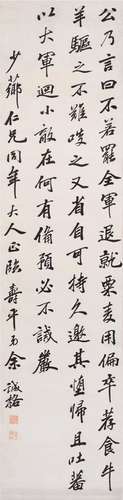 公乃言曰不若罷全軍退就粟麦用偏卒荐食牛
羊驅之不難啖之又省自可持久邀其惰歸且吐蕃
以大軍迴小敵在何有備預必不誡嚴
少薌仁兄同年大人正臨 壽平弟余誠格